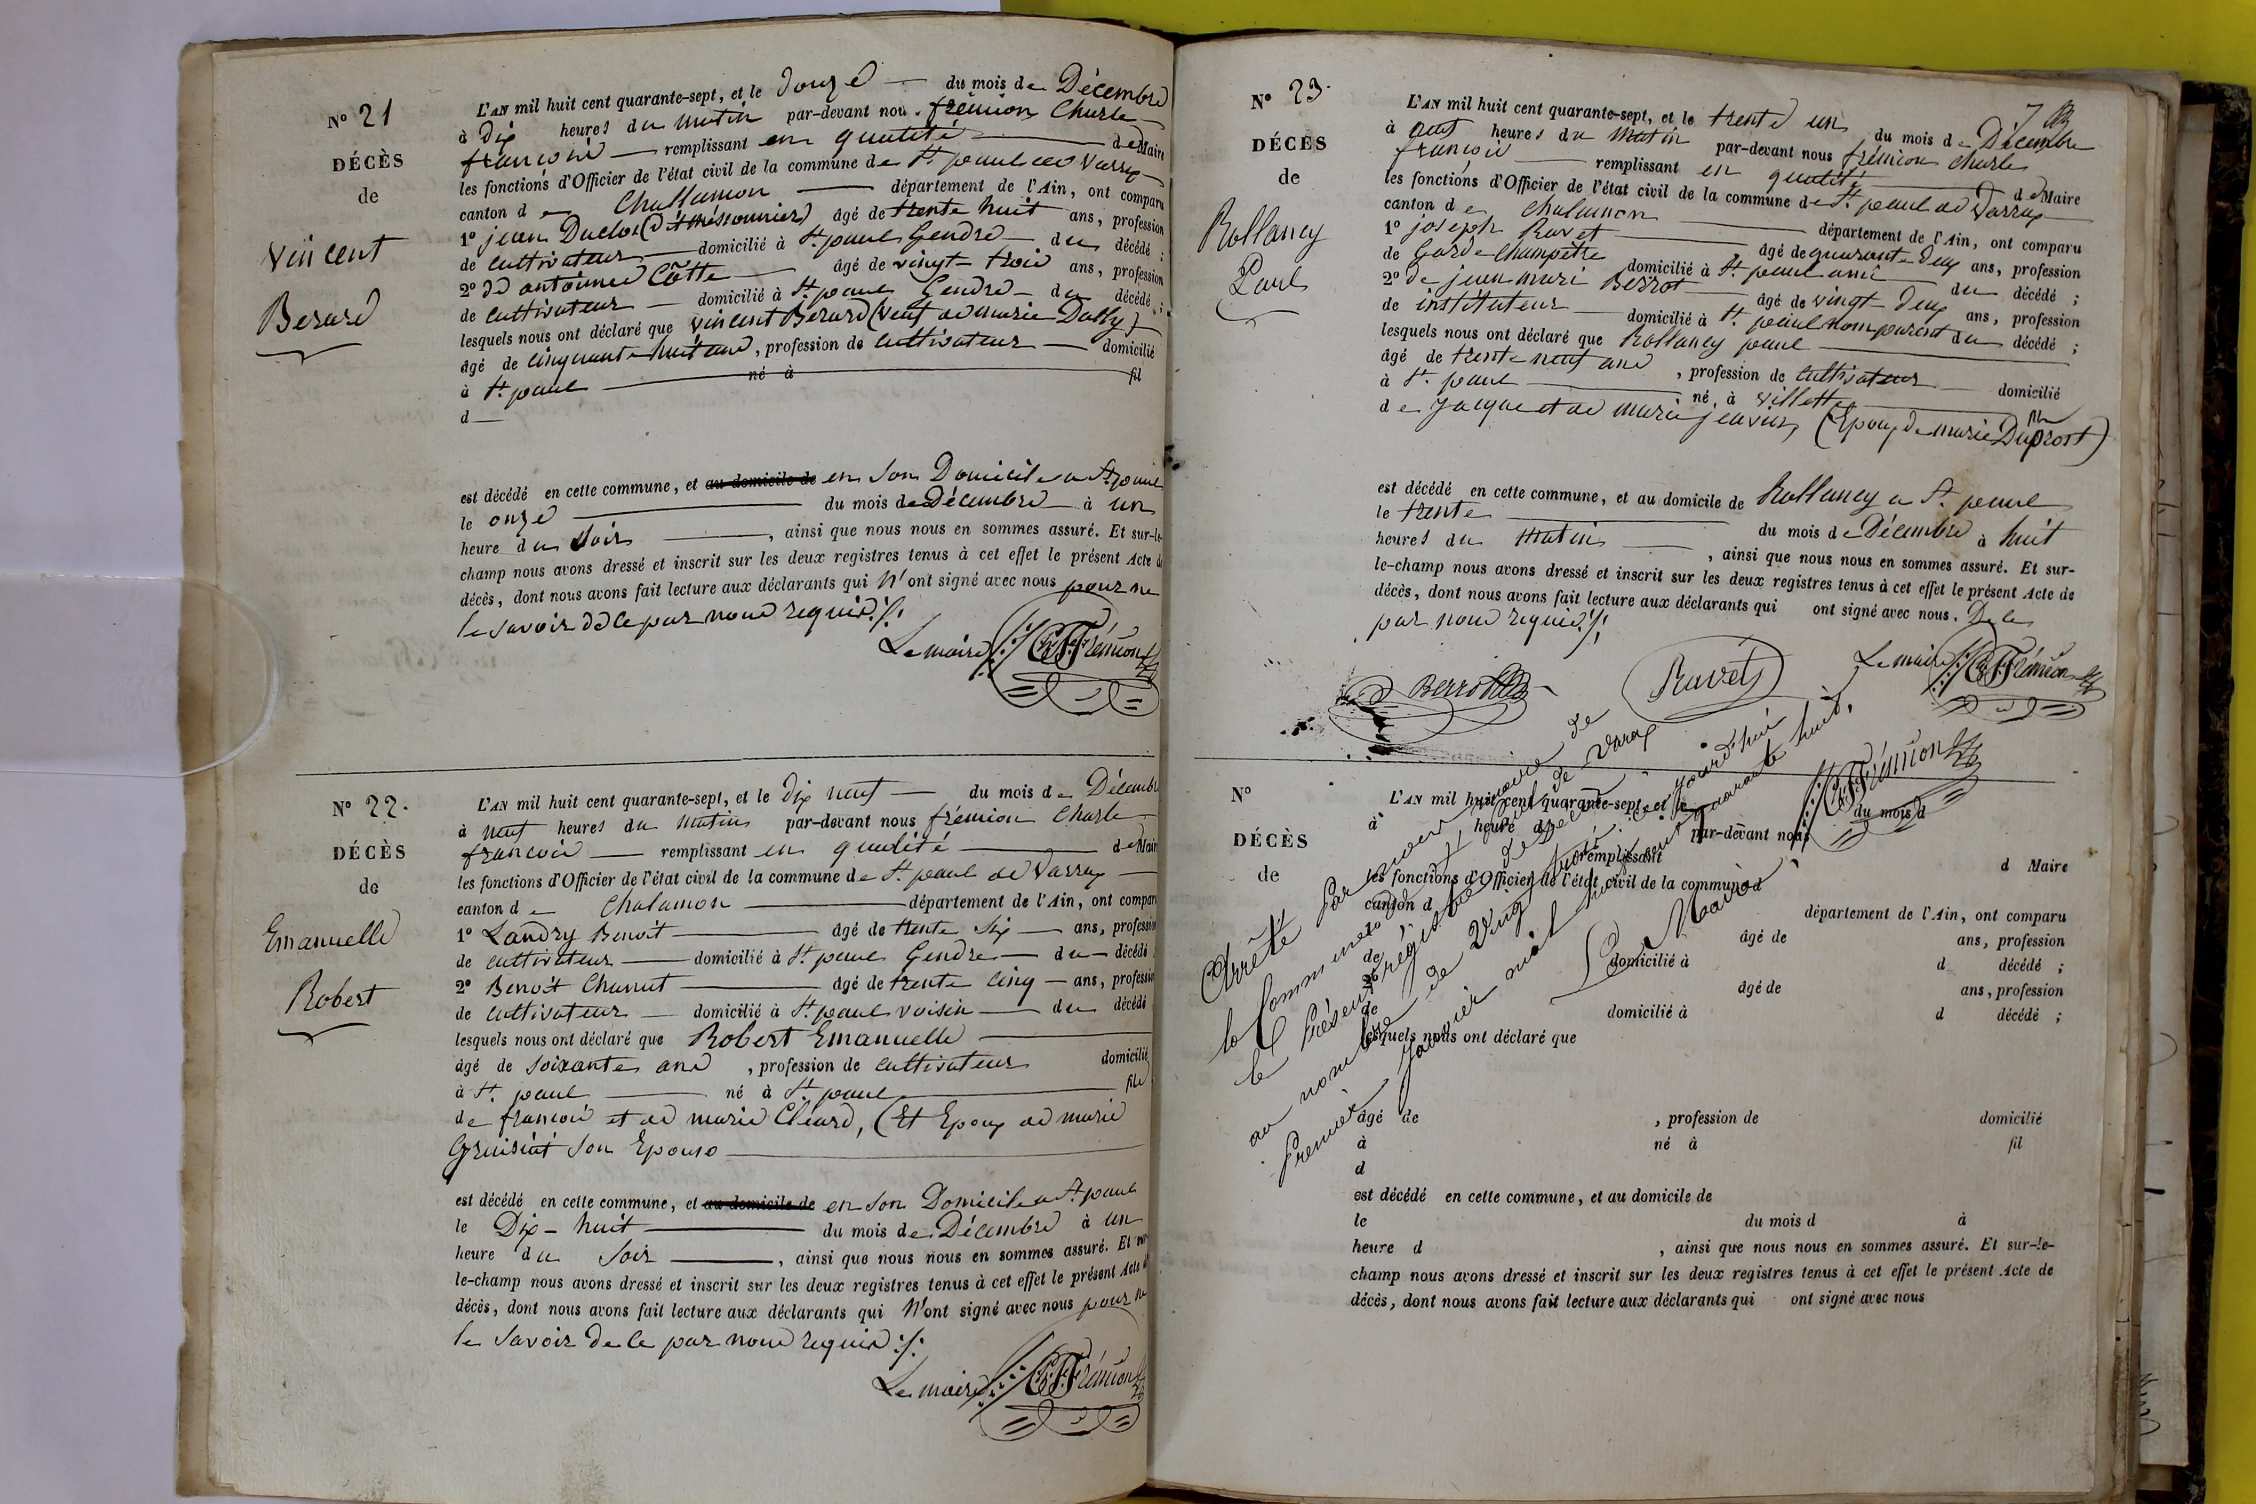 N° 21
DÉCÈS
de
Vincent
Berard
L'AN mil huit cent quarante-sept, et le Douze du mois de Décembre
à Dix heures du matin par-devant nou. frémion Charle
francois remplissant en qualité de Maire
les fonctions d'Officier de l'état civil de la commune de St. paul de Varrax
canton de Challamon département de l'Ain, ont comparu
1° jean Duclos (dit méssonnier) âgé de trente huit ans, profession
de cultivateur domicilié à St. paul Gendre du décédé ;
2° de antoinne Cotte âgé de vingt trois ans, profession
de cultivateur domicilié à St. paul Gendre du décédé ;
lesquels nous ont déclaré que vincent Berard (veuf de marie Dally)
âgé de cinquante huit ans, profession de cultivateur domicilié
à St. paul né à fil
d
est décédé en cette commune, et au domicile de en son Domicile a St. paul
le onze du mois de Décembre à un
heure du soir , ainsi que nous nous en sommes assuré. Et sur-le-
champ nous avons dressé et inscrit sur les deux registres tenus à cet effet le présent Acte de
décès, dont nous avons fait lecture aux déclarants qui N'ont signé avec nous pour ne
le savoir de ce par nous requis ./.
Le maire Ch. F. Frémion
N° 22.
DÉCÈS
de
Emanuelle
Robert
L'AN mil huit cent quarante-sept, et le dix neuf du mois de Décembre
à neuf heures du matin par-devant nous frémion Charle
francois remplissant en qualité de Maire
les fonctions d'Officier de l'état civil de la commune de St. paul de Varrax
canton de Chalamon département de l'Ain, ont comparu
1° Landry Benoit âgé de trente six ans, profession
de cultivateur domicilié à St. paul Gendre du décédé
2° Benoit Chanut âgé de trente cinq ans, profession
de cultivateur domicilié à St. paul voisin du décédé
lesquels nous ont déclaré que Robert Emanuelle
âgé de soixante ans , profession de cultivateur domicilié
à St. paul né à St. paul fils
de francois et de marie Cléard, (Et Epoux de marie
son Epouse
est décédé en cette commune, et au domicile de en son Domicile a St. paul
le Dix-huit du mois de Décembre à un
heure du soir , ainsi que nous nous en sommes assuré. Et sur-
le-champ nous avons dressé et inscrit sur les deux registres tenus à cet effet le présent Acte de
décès, dont nous avons fait lecture aux déclarants qui N'ont signé avec nous pour ne
le savoir de ce par nous requis ./.
Le maire Ch. F. Frémion
7
N° 23.
DÉCÈS
de
Rollancy
Paul
L'AN mil huit cent quarante-sept, et le trente un du mois de Décembre
à neuf heures du matin par-devant nous frémion charle
francois remplissant en qualité de Maire
les fonctions d'Officier de l'état civil de la commune de St. paul de Varrax
canton de Chalamon département de l'Ain, ont comparu
1° joseph Ravet âgé de quarante deux ans, profession
de Garde Champêtre domicilié à St. paul ami du décédé ;
2° de jean mari Berrot âgé de vingt deux ans, profession
de instituteur domicilié à St. paul non parent du décédé ;
lesquels nous ont déclaré que Rollancy paul
âgé de trente neuf ans , profession de cultivateur domicilié
à St. paul né à villette fils
de jacque et de marie jeavin (Epoux de marie Duprost)
est décédé en cette commune, et au domicile de Rollancy a St. paul
le trente du mois de Décembre à huit
heures du matin , ainsi que nous nous en sommes assuré. Et sur-
le-champ nous avons dressé et inscrit sur les deux registres tenus à cet effet le présent Acte de
décès, dont nous avons fait lecture aux déclarants qui ont signé avec nous. De ce
par nous requis ./.
Berrot Ravet Le maire Ch. F. Frémion
Arrêté par nous maire de
la Commune de St. Paul de Varax
le présent régistre de Décès
au nombre de Vingt trois ce jourd'hui
premier janvier mil huit cent quarante huit.
Le Maire Ch. F. Frémion
N°
DÉCÈS
de
L'AN mil huit cent quarante-sept, et le du mois d
à heure d par-devant nous
remplissant d Maire
les fonctions d'Officier de l'état civil de la commune d
canton d département de l'Ain, ont comparu
âgé de ans, profession
de domicilié à d décédé ;
2° âgé de ans, profession
de domicilié à d décédé ;
lesquels nous ont déclaré que
âgé de , profession de domicilié
à né à fil
d
est décédé en cette commune, et au domicile de
le du mois d à
heure d , ainsi que nous nous en sommes assuré. Et sur-le-
champ nous avons dressé et inscrit sur les deux registres tenus à cet effet le présent Acte de
décès, dont nous avons fait lecture aux déclarants qui ont signé avec nous